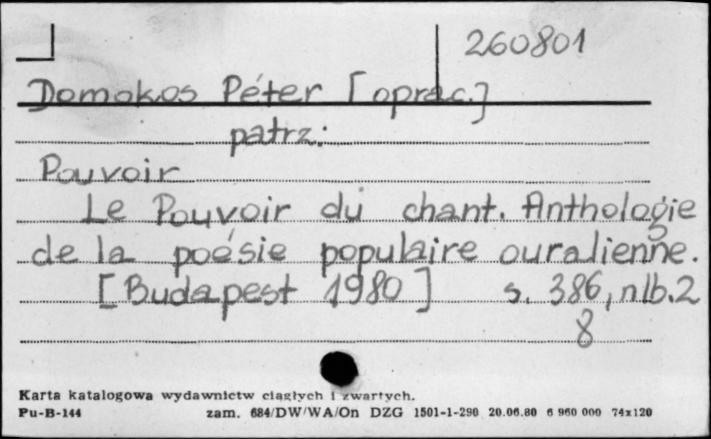 260801
Domokos Péter [oprac.]
patrz:
Pouvoir
Le Pouvoir du chant. Anthologie
de la poésie populaire ouralienne.
[Budapest 1980] s. 386, nlb. 2
8
Karta katalogowa wydawnictw ciągłych i zwartych.
Pu-B-144 zam. 684/DW/WA/On DZG 1501-1-290 20.06.80 6 960 000 74x120